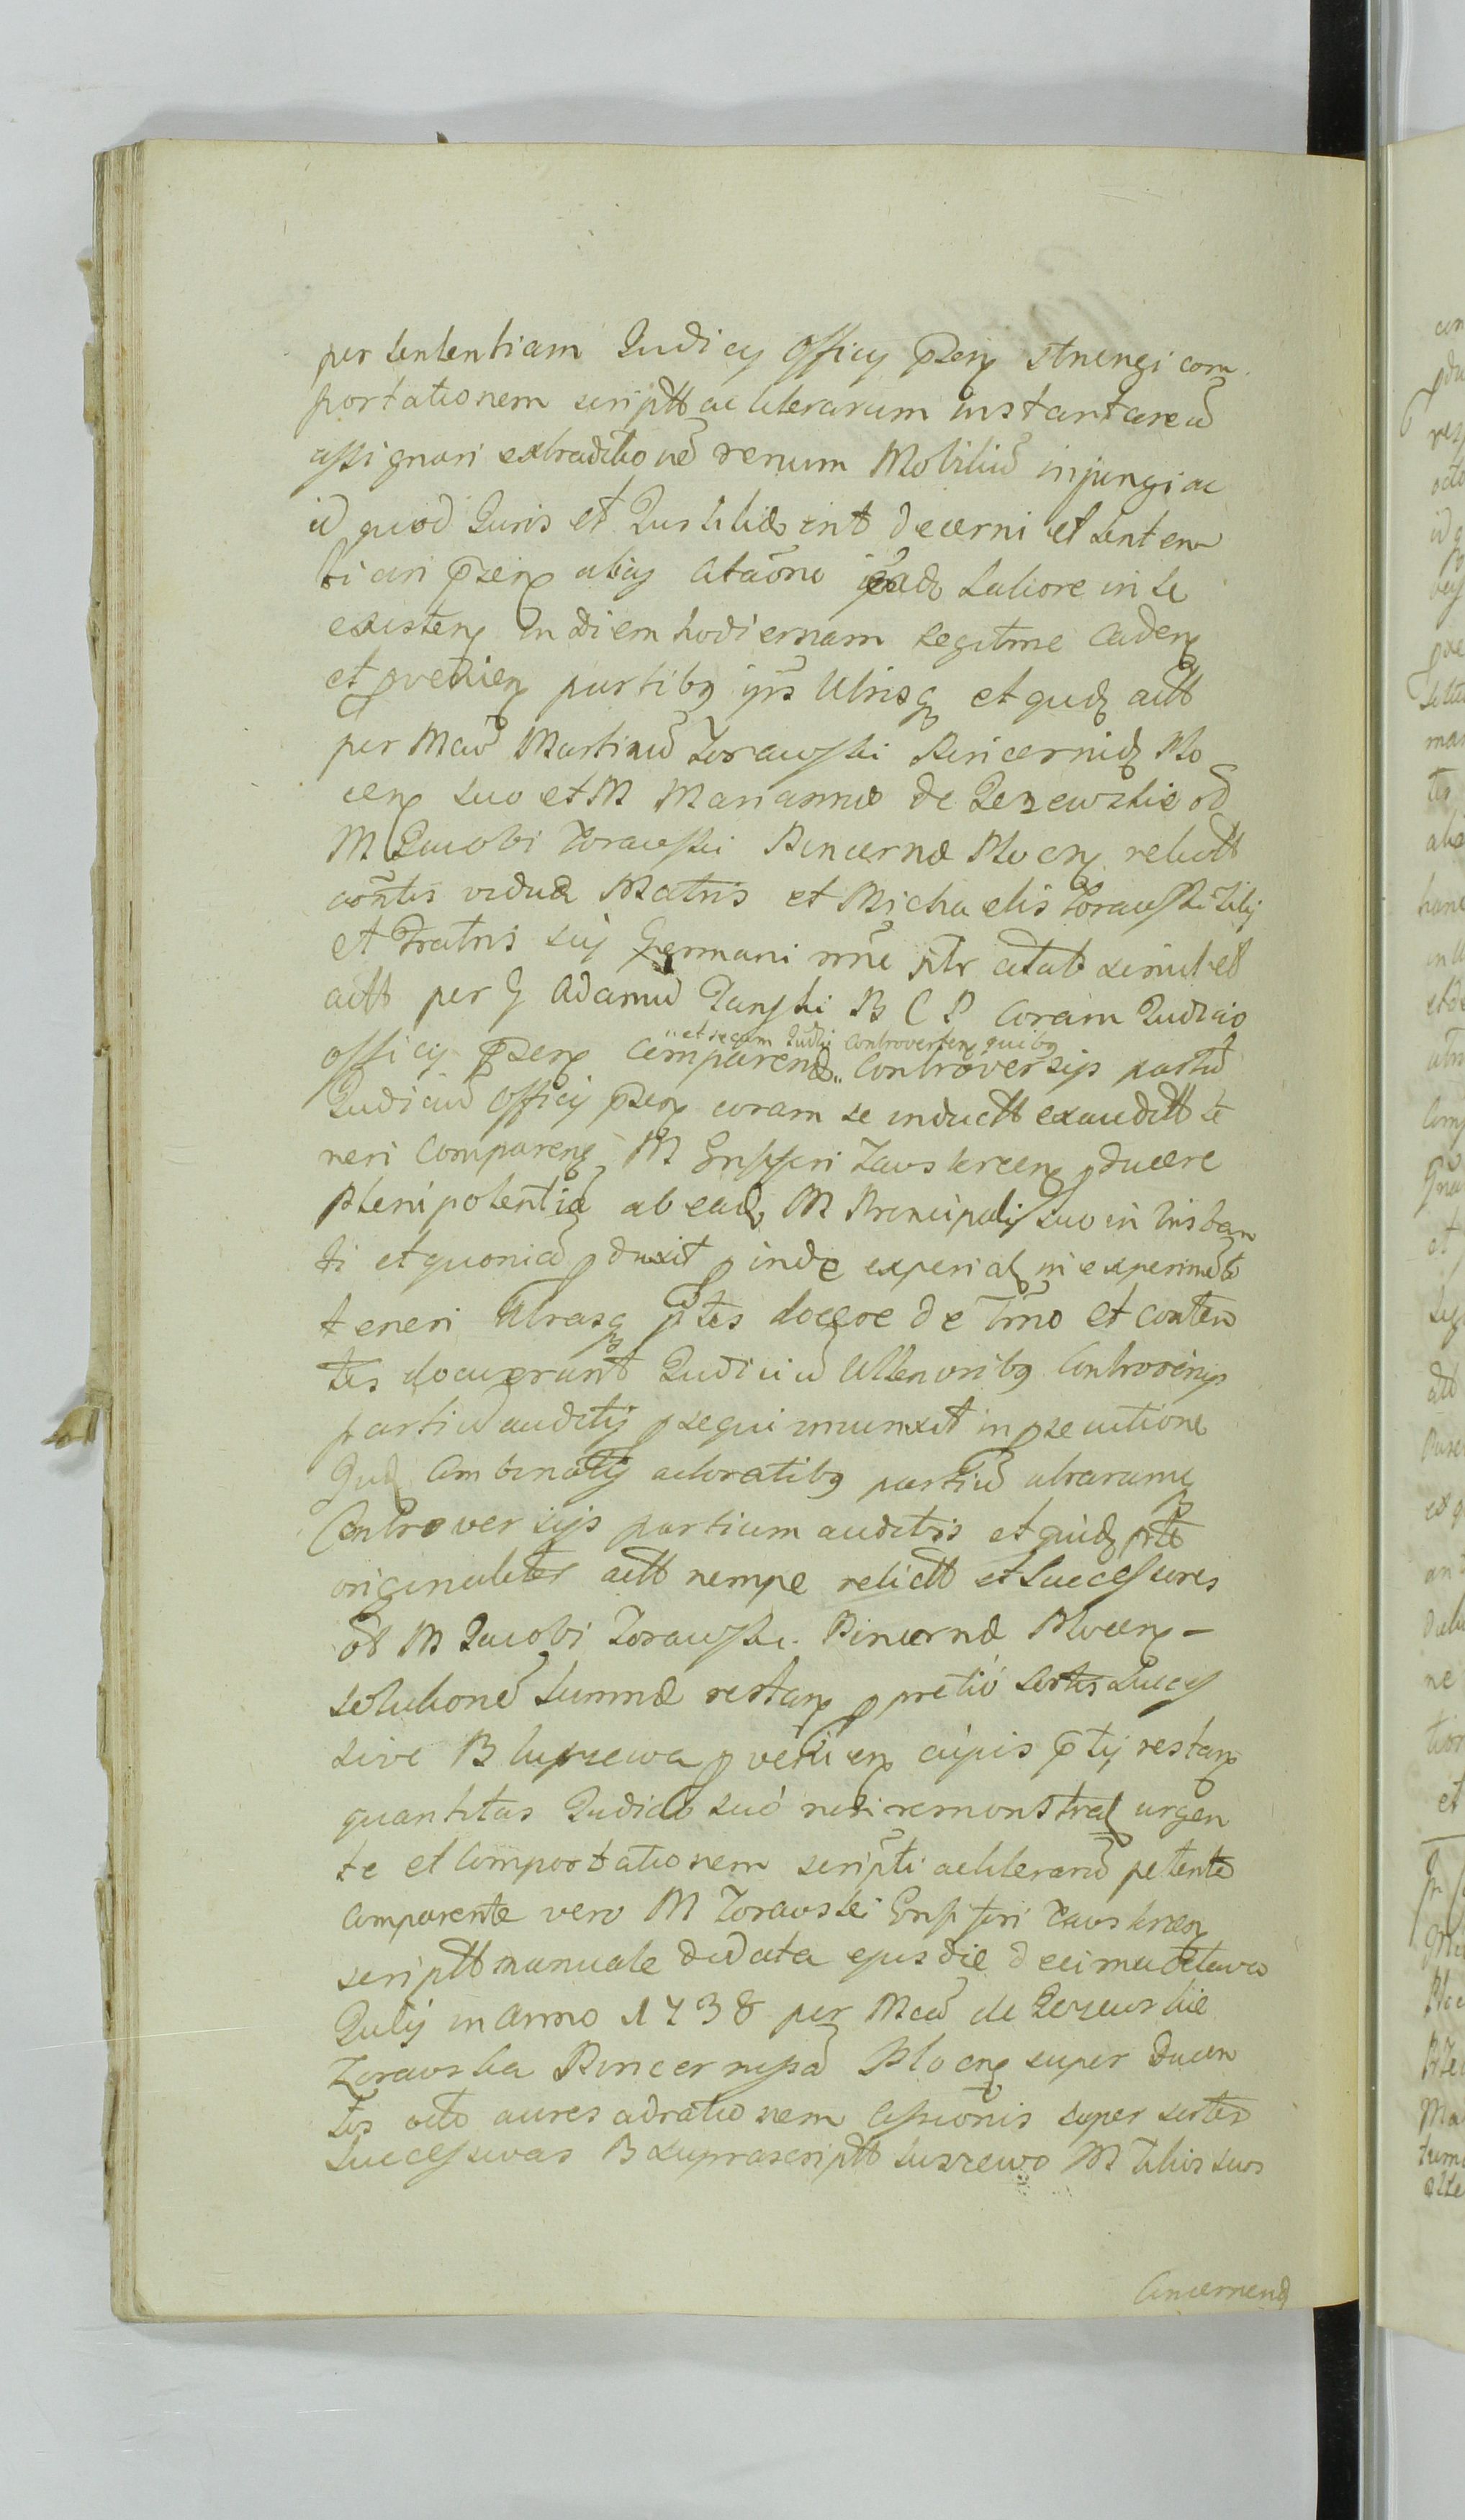 per sententiam Judicy officy pszen stringi com
portationem scriptt ac literarum instantaneu
assignari extraditione rerum Mobiliu injungi ac
id quod Juris et Justitiæ erit decerni et senten
tiari pszen alias Citaone eade latiore in se
existen in diem hodiernam legitme caden
et pvenien partibq ijs Utrisq et quid actt
per Mcu Martinu Zorawski Pincernid Plo
cen suo et M Mariannæ de Jezewskie od
M Jacobi Zorawski Pincernæ Plocen relictt
contis viduæ Matris et Michaelis Zorawski Filij
et Fratris sui Germani nne ptr citat simul et
actt per G Adamu Janski B C P Coram Judicio
"et secum Judlr Controverten quibq
officy pszen Comparend" Controversijs partiu
Judiciu Officij pszen coram se inductt exauditt te
neri Comparen M Ensiferi Zawskrcen pducere
Plenipotentia ab eade M Principali suo in instan
ti et quonia pduxit pinde experiat in experimeto
teneri Utrasq ptes docere de Trno et conten
tis docuerunt Judiciu Ulterioribq Controversijs
partiu auditis psequi innunxit in psecutione
Quid Combinatis actoratibq partiu utrarumq
Controversijs partium auditis et quid pte
originaliter actt nempe relictt et Successores
od M Jacobi Zorawski Pincernæ Plocen –
solutione summæ restan p pretio sortis Succes
sive B Luszewa pvenien cujus ptij restan
quantitas Judicio suo nisi remonstrat urgen
te et Comportationem scripti ac literaru petente
Comparente vero M Zorawski Ensiferi Zawskrcen
scriptt manuale de data ejus die decima octava
Julij in Anno 1738 per Mca de Jezewskie
Zorawska Pincernissa Plocen super ducen
tos octo aureos ad rationem Cessionis super sortes
Successivas B supra scriptt Luszewo M Filiis suis
Concernend